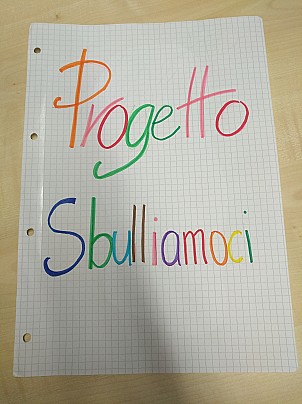 Progetto
Sbulliamoci